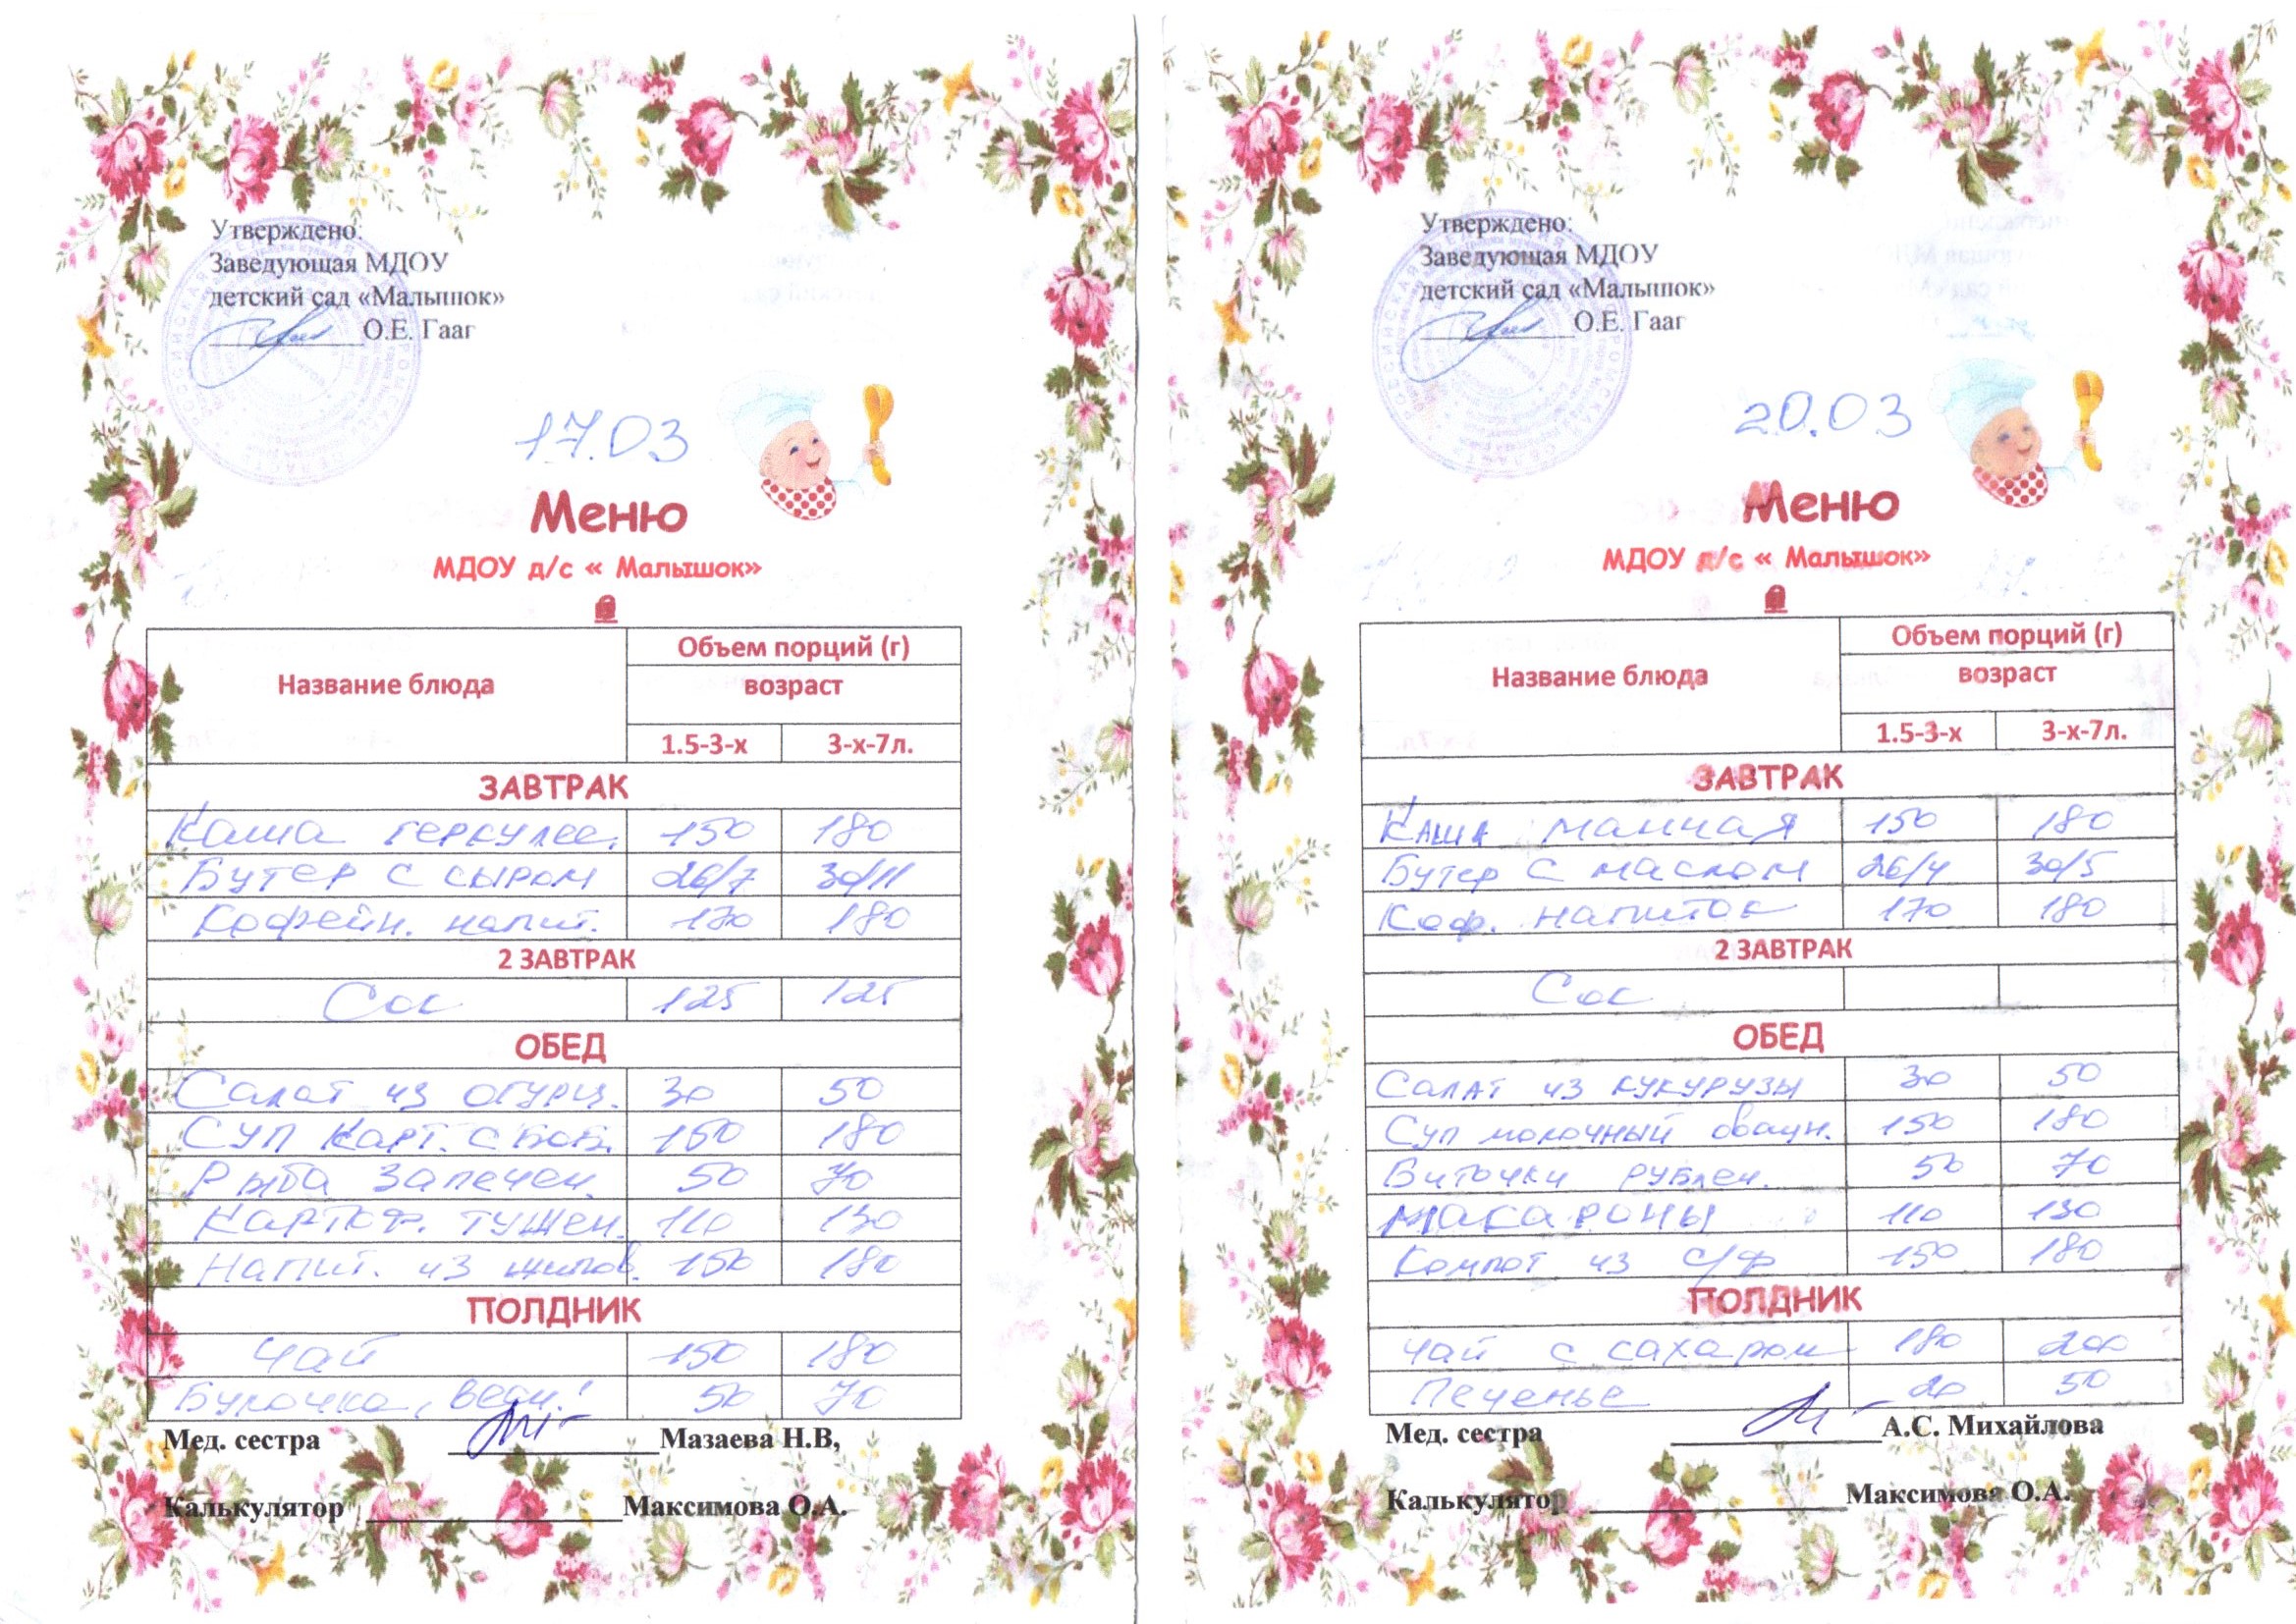 Утверждено:
Заведующая МДОУ
детский сад «Малышок»
О.Е. Гааг
17.03
Меню
МДОУ д/с « Малышок»
Название блюда
Объем порций (г)
возраст
1.5-3-х 3-х-7л.
ЗАВТРАК
Каша геркулес. 150 180
Бутер с сыром 26/7 30/11
Кофейн. напит. 170 180
2 ЗАВТРАК
Сок 125 125
ОБЕД
Салат из огурц. 30 50
Суп карт. с боб. 150 180
Рыба запечен. 50 70
Картоф. тушен. 110 130
Напит. из шипов. 150 180
ПОЛДНИК
Чай 150 180
Булочка, 50 70
Мед. сестра Мазаева Н.В,
Калькулятор Максимова О.А.
Утверждено:
Заведующая МДОУ
детский сад «Малышок»
О.Е. Гааг
20.03
Меню
МДОУ д/с « Малышок»
Название блюда
Объем порций (г)
возраст
1.5-3-х 3-х-7л.
ЗАВТРАК
Каша манная 150 180
Бутер с маслом 26/4 30/5
Коф. напиток 170 180
2 ЗАВТРАК
Сок
ОБЕД
Салат из кукурузы 30 50
Суп молочный овощн. 150 180
Биточки рублен. 50 70
Макароны 110 130
Компот из с/ф 150 180
ПОЛДНИК
Чай с сахаром 180 200
Печенье 20 50
Мед. сестра А.С. Михайлова
Калькулятор Максимова О.А.